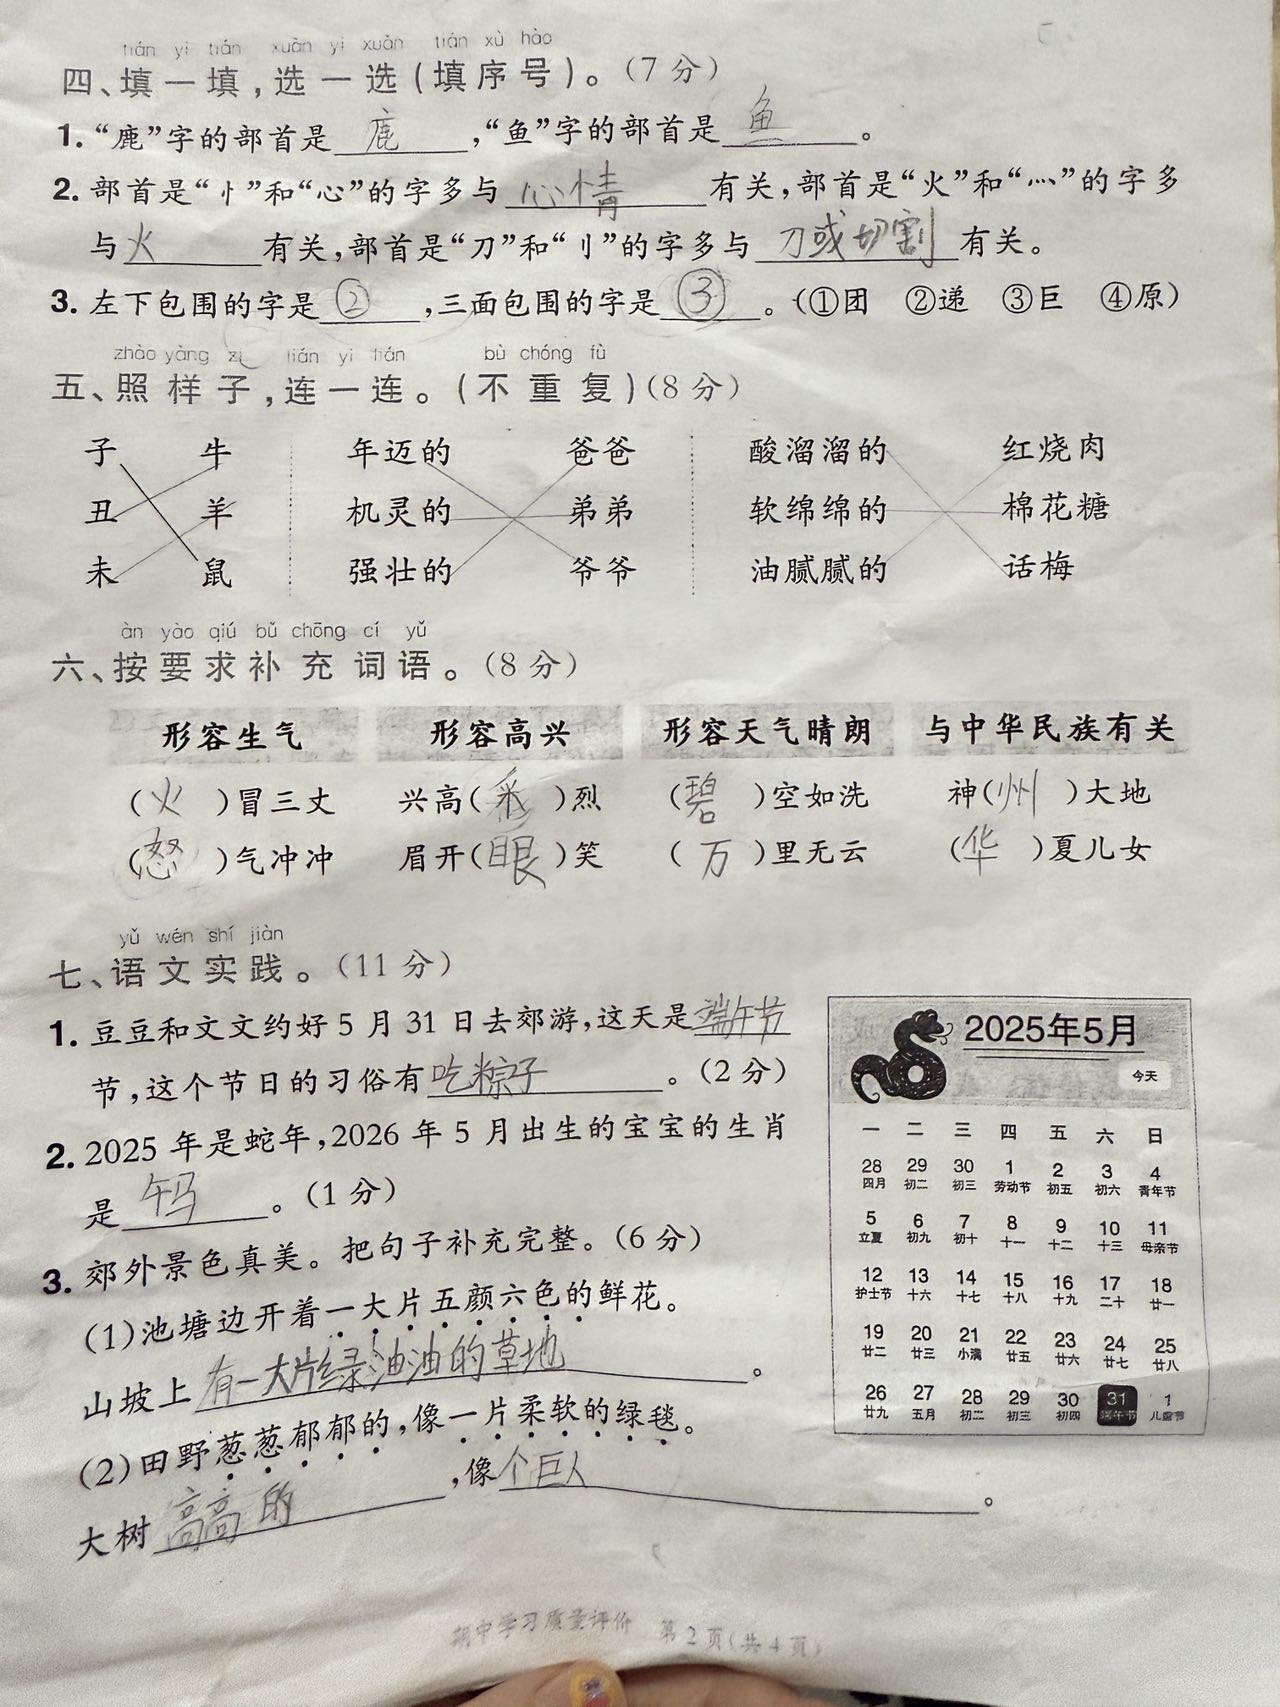 tián yì tián xuǎn yi xuǎn tián xù hào
四、填一填,选一选(填序号)。(7分)
1. “鹿”字的部首是 鹿 ,“鱼”字的部首是 鱼 。
2. 部首是“忄”和“心”的字多与 心情 有关,部首是“火”和“灬”的字多
与 火 有关,部首是“刀”和“刂”的字多与 刀或切割 有关。
3. 左下包围的字是 ② ,三面包围的字是 ③ 。(①团 ②递 ③巨 ④原)
zhào yàng zi lián yi lián bù chóng fù
五、照样子,连一连。(不重复)(8分)
子 牛 年迈的 爸爸 酸溜溜的 红烧肉
丑 羊 机灵的 弟弟 软绵绵的 棉花糖
未 鼠 强壮的 爷爷 油腻腻的 话梅
àn yāo qiú bǔ chōng cí yǔ
六、按要求补充词语。(8分)
形容生气 形容高兴 形容天气晴朗 与中华民族有关
(火)冒三丈 兴高(采)烈 (碧)空如洗 神(州)大地
(怒)气冲冲 眉开(眼)笑 (万)里无云 (华)夏儿女
yǔ wén shí jiàn
七、语文实践。(11分)
1. 豆豆和文文约好5月31日去郊游,这天是端午节
节,这个节日的习俗有吃粽子。(2分)
2. 2025年是蛇年,2026年5月出生的宝宝的生肖
是 午马 。(1分)
3. 郊外景色真美。把句子补充完整。(6分)
(1)池塘边开着一大片五颜六色的鲜花。
山坡上有一大片绿油油的草地。
(2)田野葱葱郁郁的,像一片柔软的绿毯。
大树高高的,像个巨人。
2025年5月
今天
一 二 三 四 五 六 日
28 29 30 1 2 3 4
四月 初二 初三 劳动节 初五 初六 青年节
5 6 7 8 9 10 11
立夏 初九 初十 十一 十二 十三 母亲节
12 13 14 15 16 17 18
护士节 十六 十七 十八 十九 二十 廿一
19 20 21 22 23 24 25
廿二 廿三 小满 廿五 廿六 廿七 廿八
26 27 28 29 30 31 1
廿九 五月 初二 初三 初四 端午节 儿童节
期中学习质量评价 第2页(共4页)